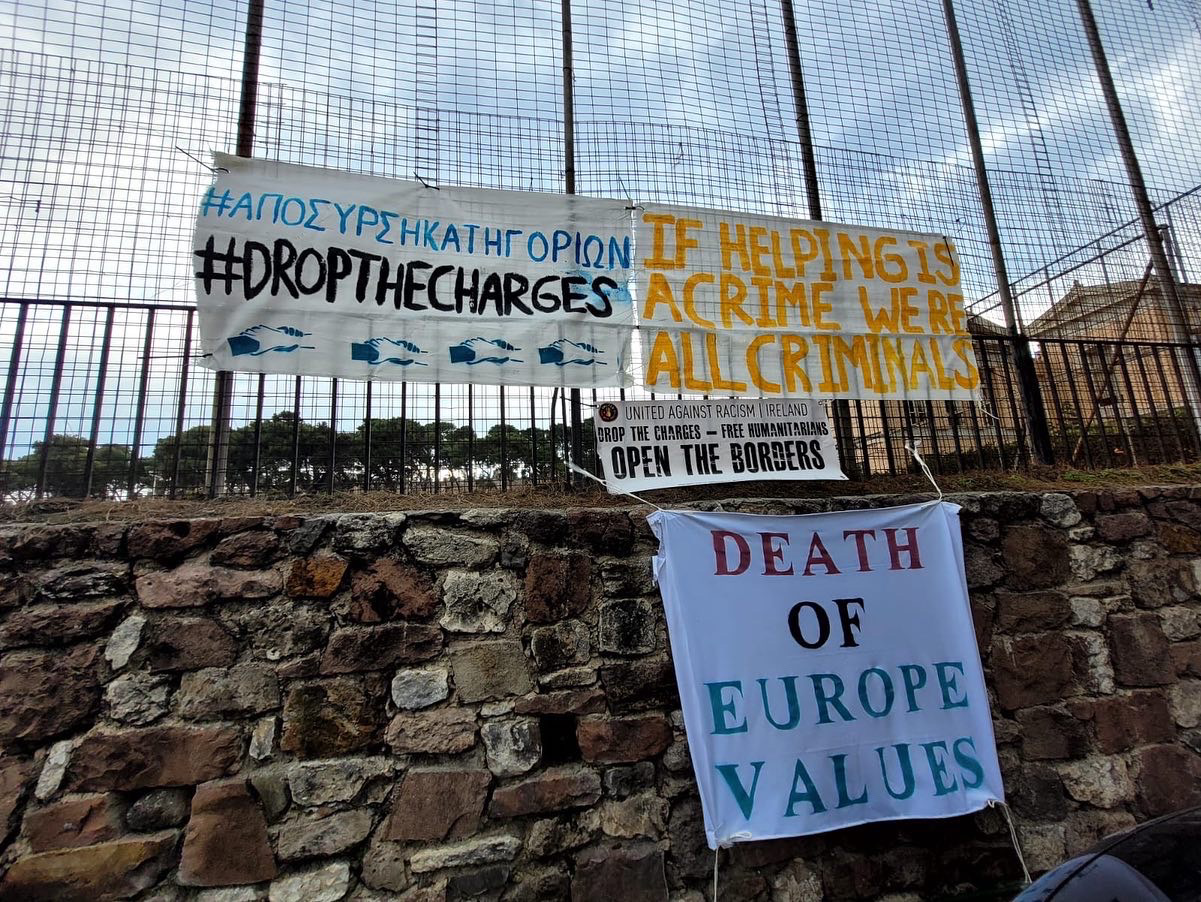 #ΑΠΟΣΥΡΣΗΚΑΤΗΓΟΡΙΩΝ
#DROPTHECHARGES
IF HELPING IS
A CRIME WE RE
ALL CRIMINALS
UNITED AGAINST RACISM | IRELAND
DROP THE CHARGES – FREE HUMANITARIANS
OPEN THE BORDERS
DEATH
OF
EUROPE
VALUES